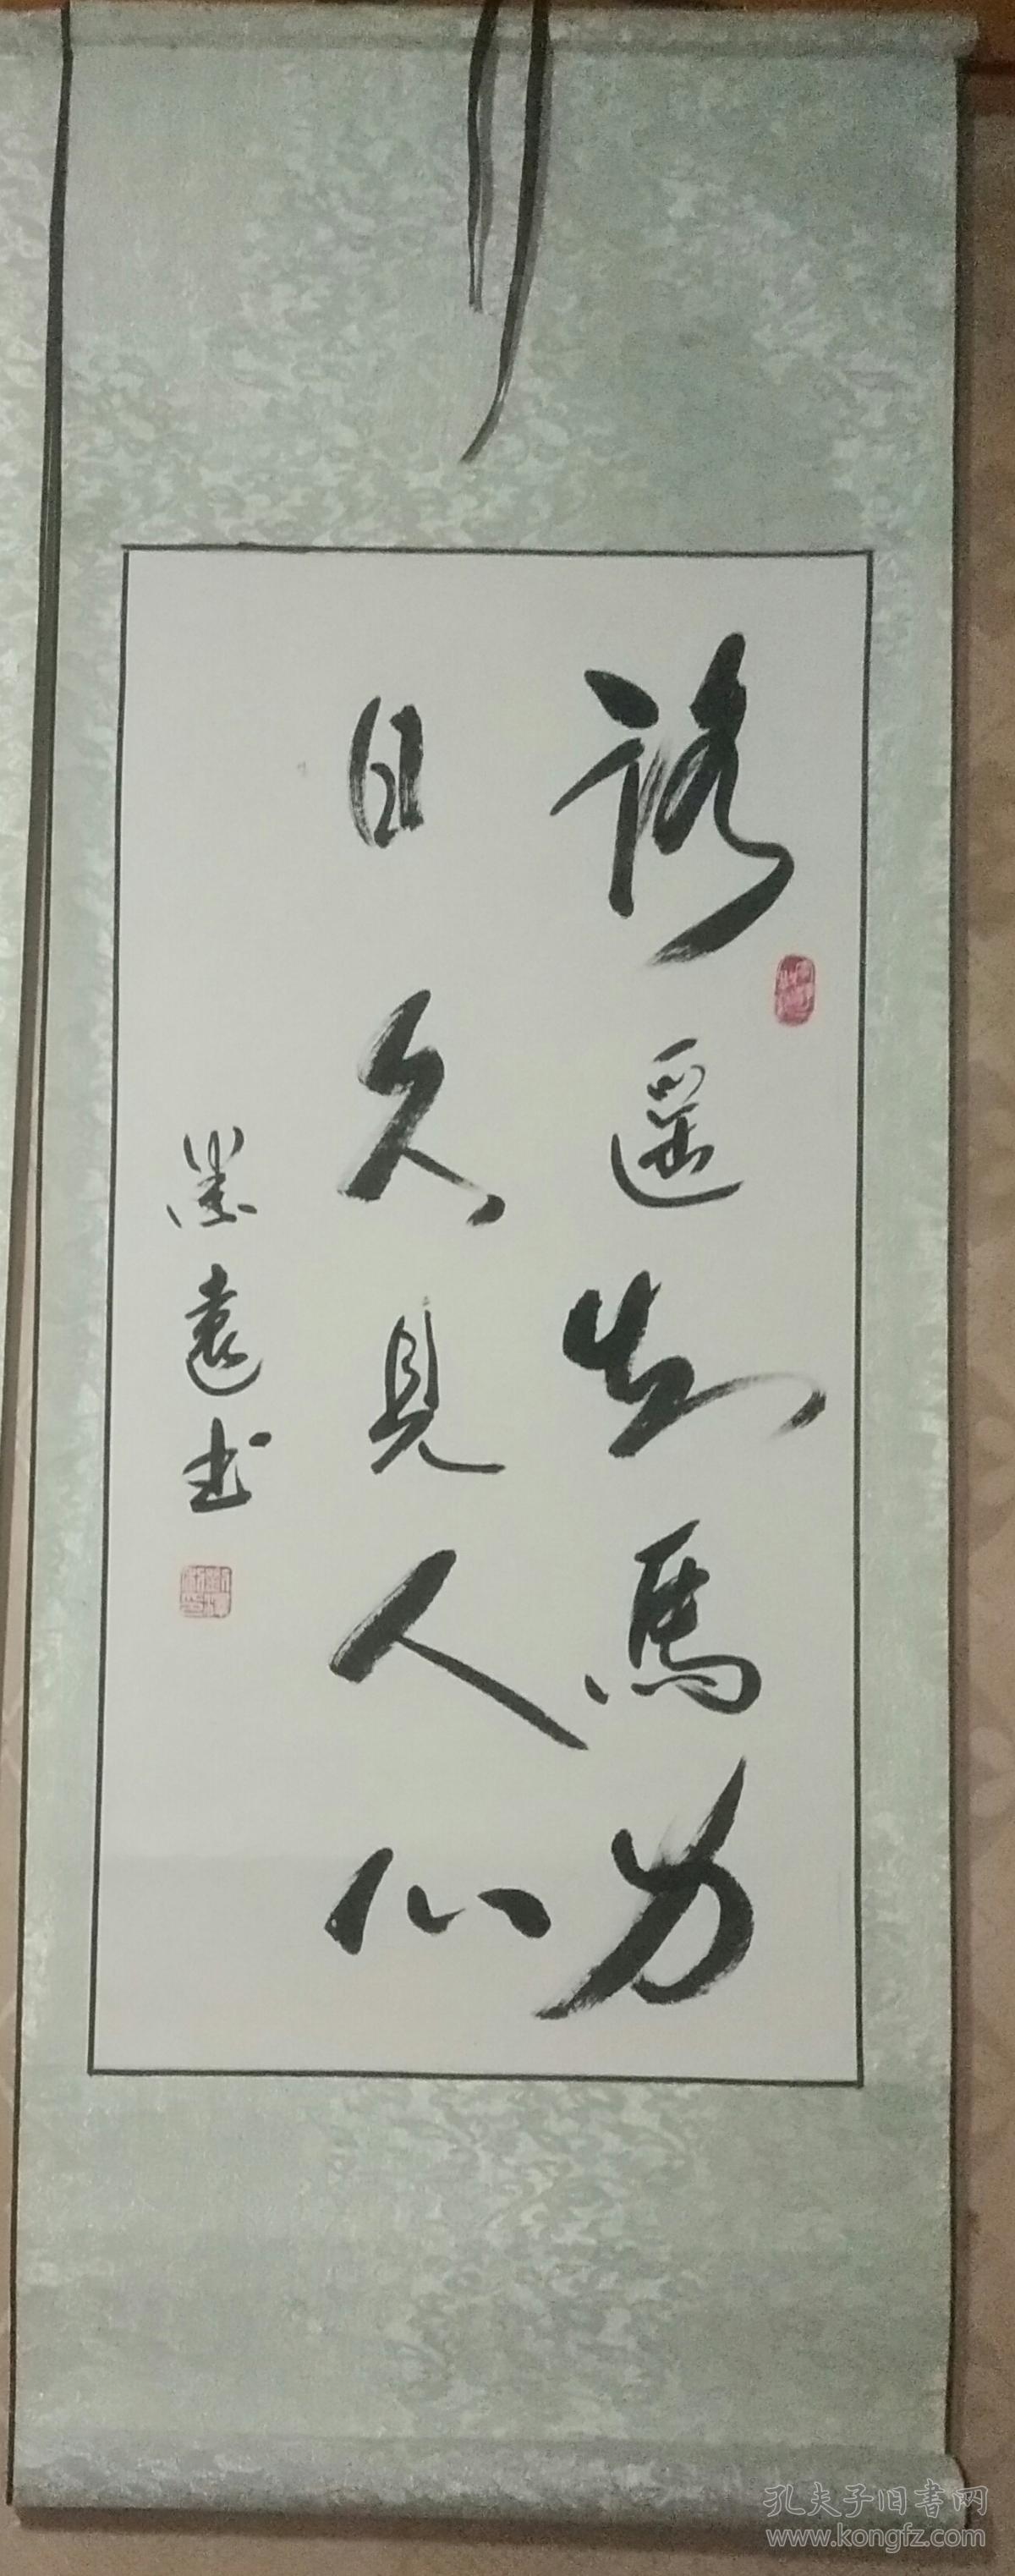 路遥知馬力
日久見人心
墨遠书
孔夫子旧書网
www.kongfz.com